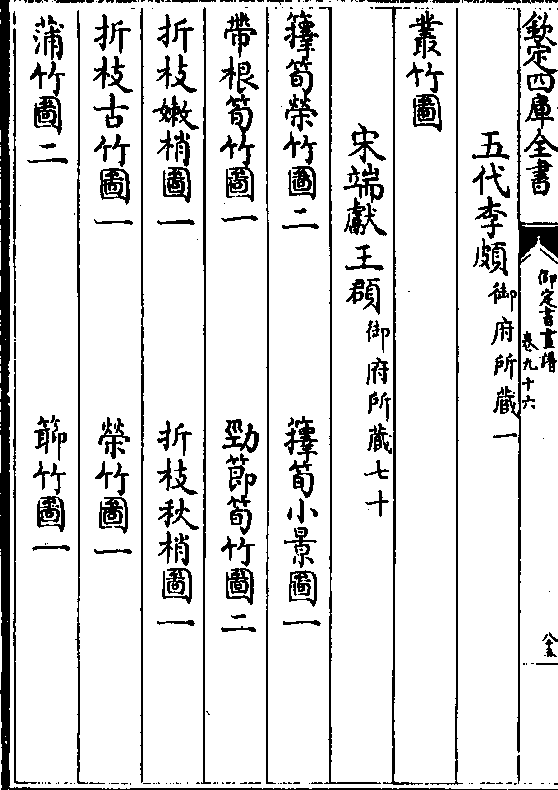 欽定四庫全書
御定書畫譜
卷九十六
八十五
五代李頗御府所藏一
叢竹圖
宋端獻王頵御府所藏七十
籜筍榮竹圖二 籜筍小景圖一
帶根筍竹圖一 勁節筍竹圖二
折枝嫩梢圖一 折枝秋梢圖一
折枝古竹圖一 榮竹圖一
蒲竹圖二 笻竹圖一